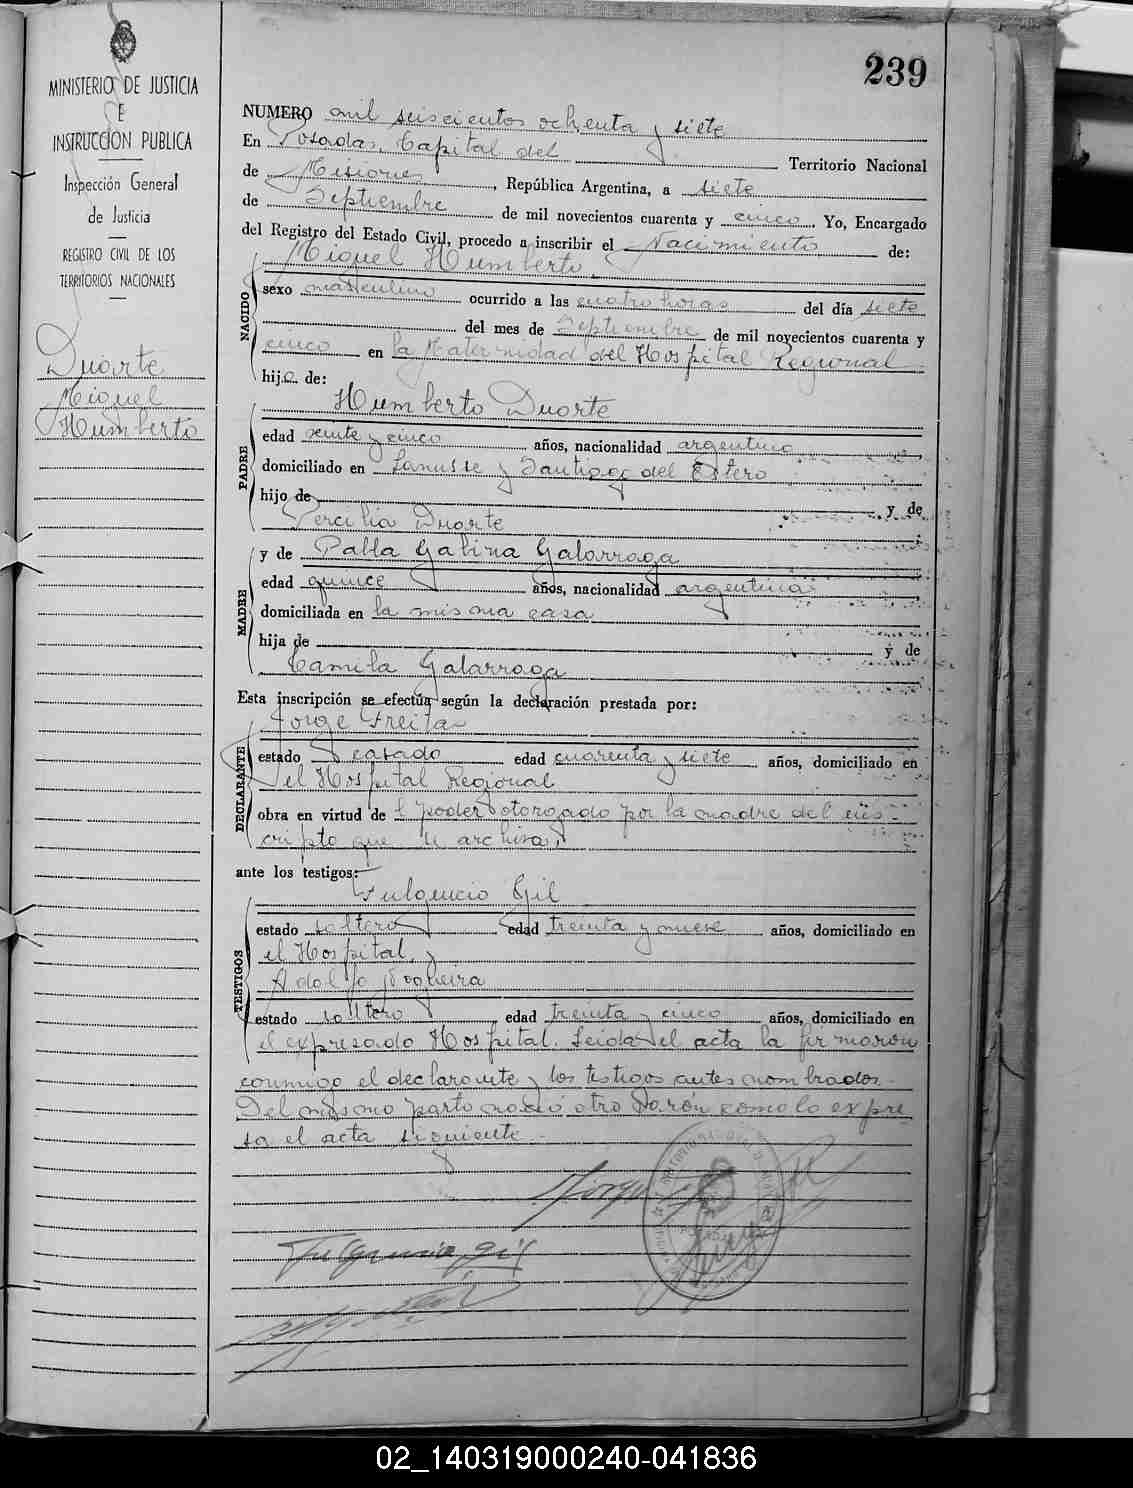 MINISTERIO DE JUSTICIA
E
INSTRUCCION PUBLICA
Inspección General
de Justicia
REGISTRO CIVIL DE LOS
TERRITORIOS NACIONALES
Duarte
Miguel
Humberto
239
NUMERO mil seiscientos ochenta y siete
En Posadas, Capital del Territorio Nacional
de Misiones, República Argentina, a siete
de Septiembre de mil novecientos cuarenta y cinco. Yo, Encargado
del Registro del Estado Civil, procedo a inscribir el Nacimiento de:
Miguel Humberto
NACIDO
sexo masculino ocurrido a las cuatro horas del día siete
del mes de Septiembre de mil novecientos cuarenta y
cinco en la Maternidad del Hospital Regional
hijo de:
Humberto Duarte
PADRE
edad veinte y cinco años, nacionalidad argentino
domiciliado en Lanusse y Santiago del Estero
hijo de y de
Percilia Duarte
MADRE
y de Pabla Galina Galarraga
edad quince años, nacionalidad argentina
domiciliada en la misma casa
hija de y de
Camila Galarraga
Esta inscripción se efectúa según la declaración prestada por:
Jorge Freitas
DECLARANTE
estado casado edad cuarenta y siete años, domiciliado en
el Hospital Regional
obra en virtud de l poder otorgado por la madre del ins-
cripto que se archiva,
ante los testigos:
Fulgencio Gil
TESTIGOS
estado soltero edad treinta y nueve años, domiciliado en
el Hospital, y
Adolfo Nogueira
estado soltero edad treinta y cinco años, domiciliado en
el expresado Hospital. Leida el acta la firmaron
conmigo el declarante y los testigos antes nombrados.
Del mismo parto nació otro varón como lo expre
sa el acta siguiente.
Fulgencio gil
02_140319000240-041836